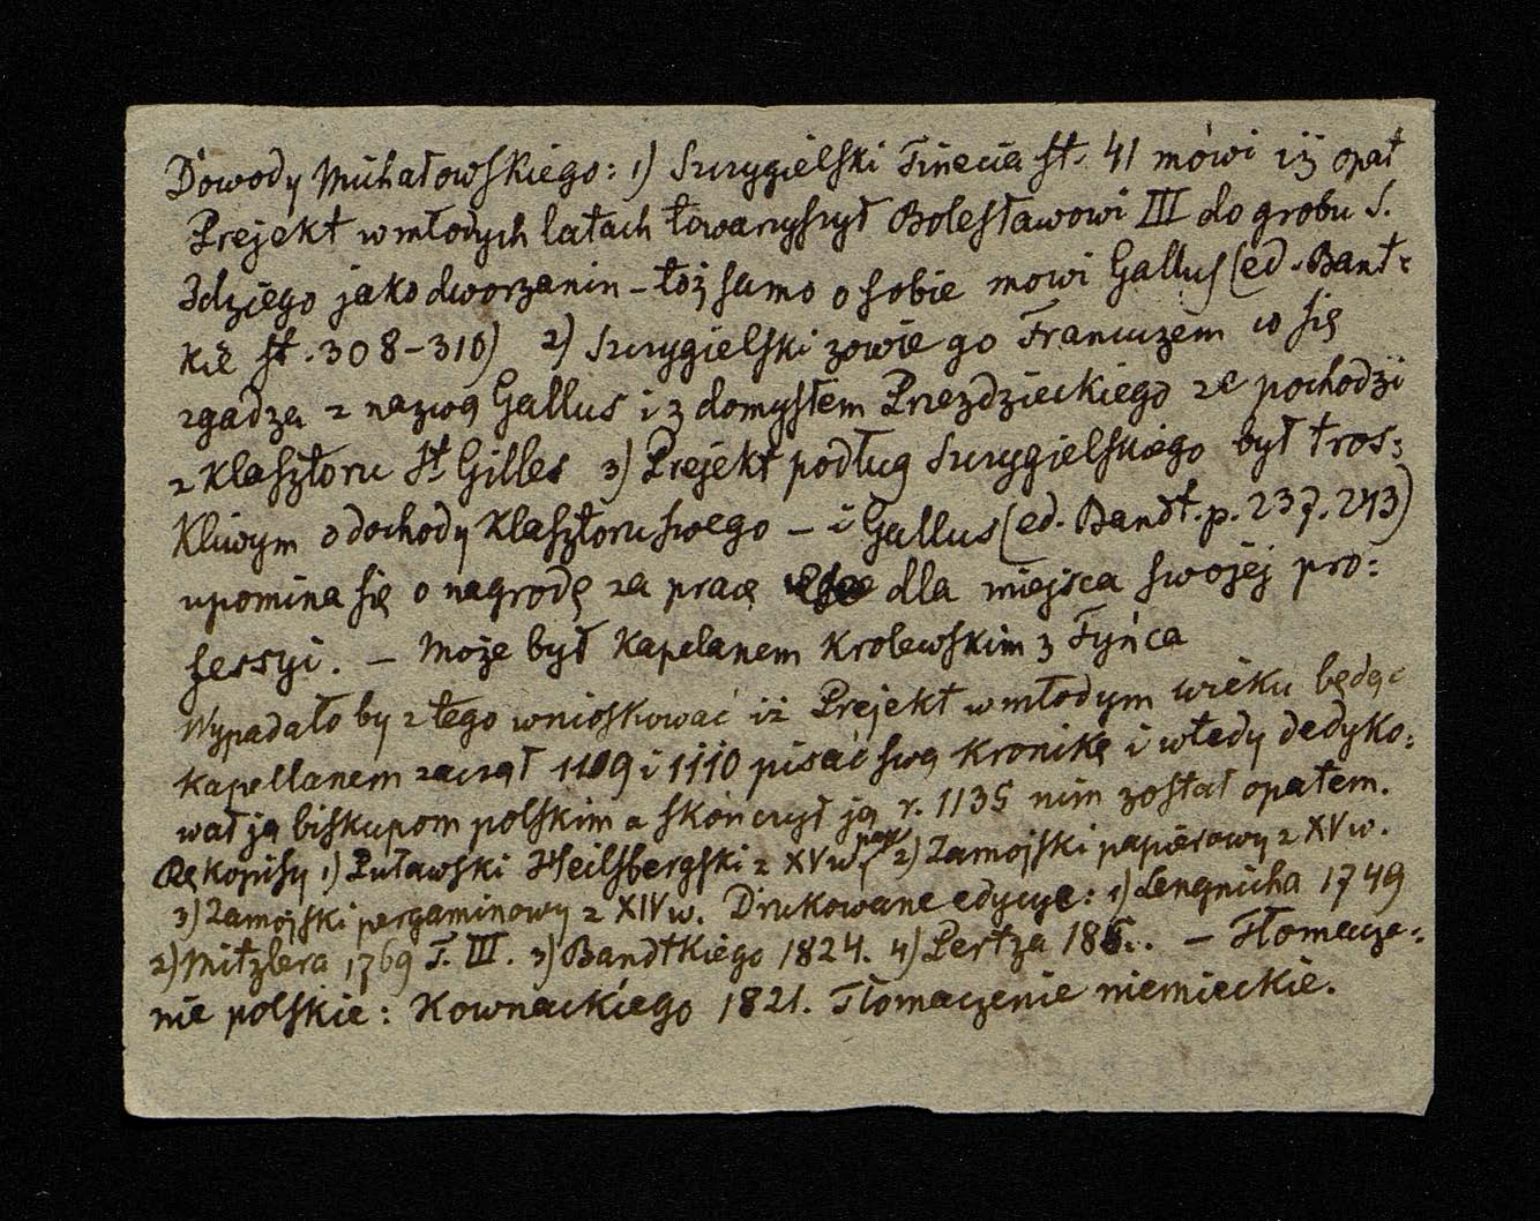 Dowody Michałowskiego: 1) Szczygielski Tinecia st. 41 mówi iż opat
Prejekt w młodych latach towarzyszył Bolesławowi III do grobu S.
Idziego jako dworzanin – toż samo o sobie mowi Gallus (ed. Bant-
kie st. 308–310) 2) Szczygielski zowie go Francuzem co się
zgadza z nazwą Gallus i z domysłem Przezdzieckiego ze pochodzi
z klasztoru St Gilles 3) Prejekt podług Szczygielskiego był tros-
kliwym o dochody klasztoru swego – i Gallus (ed. Bandt. p. 237. 243)
upomina się o nagrodę za pracę dla miejsca swojej pro-
fessyi. – Może był kapelanem krolewskim z Tyńca
Wypadało by z tego wnioskować iż Prejekt w młodym wieku będąc
kapellanem zaczął 1109 i 1110 pisać swą kronikę i wtedy dedyko-
wał ją biskupom polskim a skończył ją r. 1135 nim został opatem.
Rękopisy 1) Puławski Heilsbergski z XV w. pap. 2) Zamojski papierowy z XV w.
3) Zamojski pergaminowy z XIV w. Drukowane edycye: 1) Lengnicha 1749
2) Mitzlera 1769 T. III. 3) Bandtkiego 1824. 4) Pertza 18 – Tłomacze-
nie polskie: Kownackiego 1821. Tłomaczenie niemieckie.